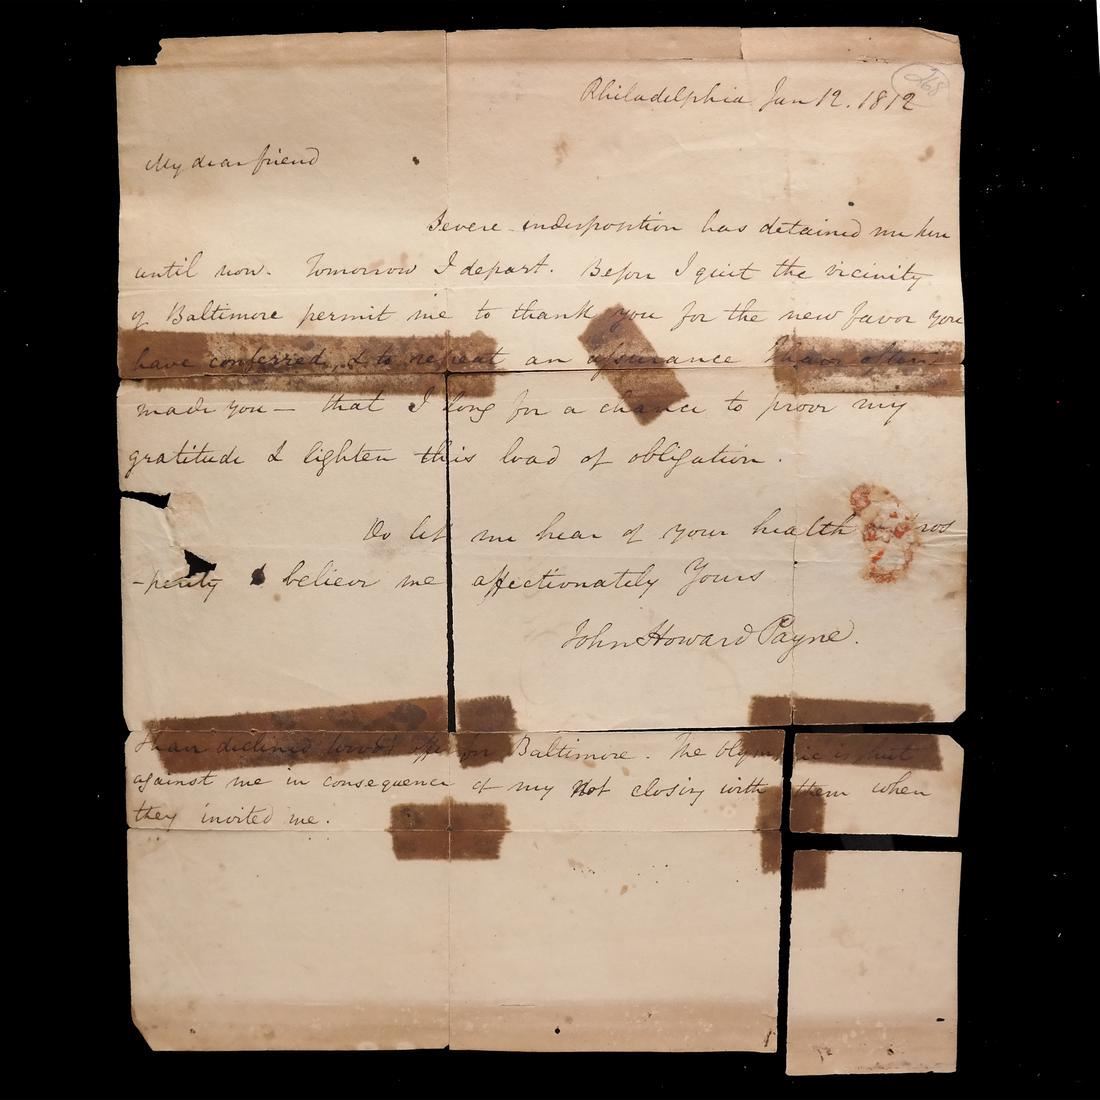 268
Philadelphia Jan 12. 1812
My dear friend
Severe indisposition has detained me here
until now. Tomorrow I depart. Before I quit the vicinity
of Baltimore permit me to thank you for the new favor you
have conferred, & to repeat an assurance I have often
made you — that I long for a chance to prove my
gratitude & lighten this load of obligation.
Do let me hear of your health ros
-perity believe me affectionately Yours
John Howard Payne.
I have declined two offers for Baltimore. The Olympic is shut
against me in consequence of my not closing with them when
they invited me.